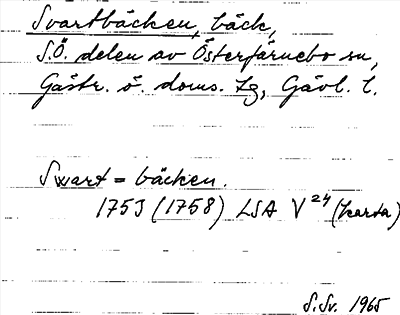 Svartbäcken, bäck,
S.Ö. delen av Österfärnebo sn,
Gästr. ö. doms. tg, Gävl. l.
Swart = bäcken.
1753 (1758) LSA V 24 (karta)
S.Sv. 1965